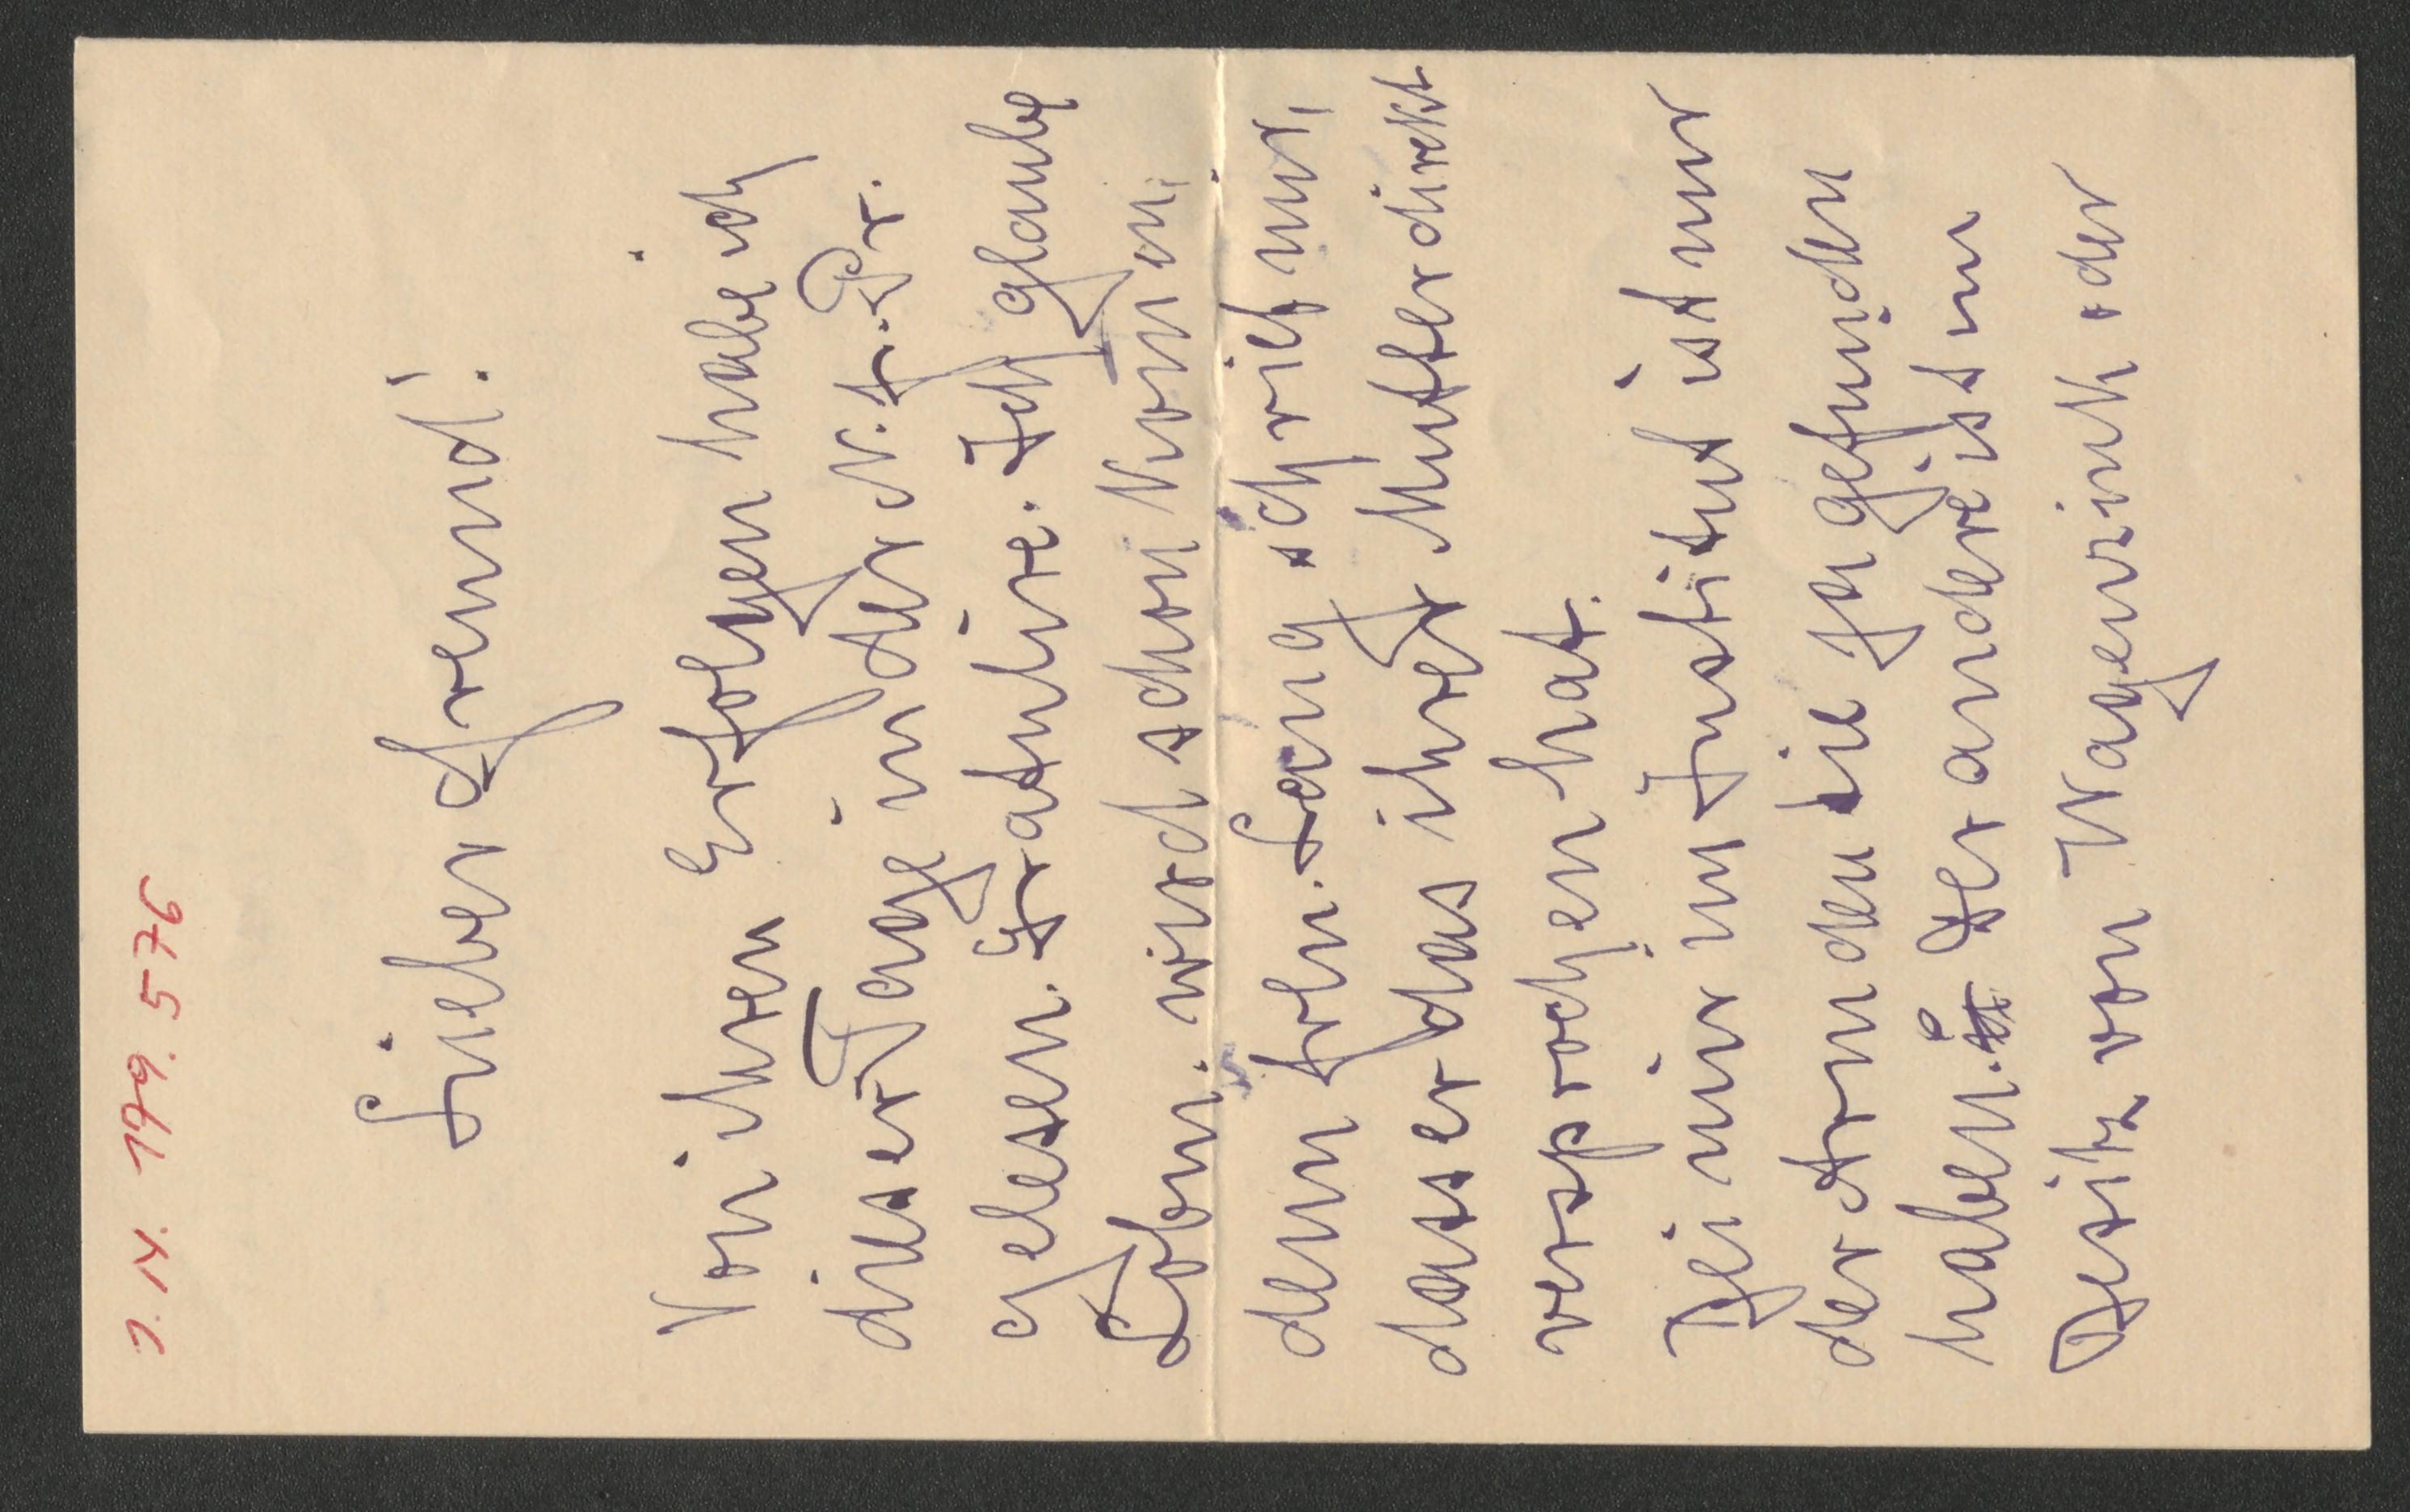 J. N. 179.576
Lieber Freund!
Von ihren Erfolgen habe ich
dieser Tage in der N. fr. Pr.
gelesen. Gratulire. Ich glaube
Lobm. wird schon kommen,
denn Frln. Lang schrieb mir,
dass er das ihrer Mutter direkt
versprochen hat.
Bei mir im Institut ist nur
der Arm den Sie ja gefunden
haben. Der andere ist im
Besitz von Wagerink. der